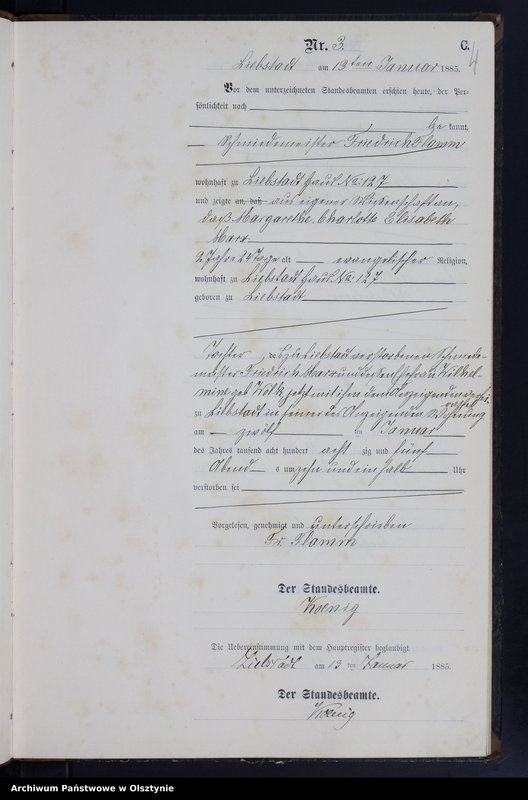 Nr. 3. C.
4
Liebstadt am 13ten Januar 1885.
Vor dem unterzeichneten Standesbeamten erschien heute, der Per-
sönlichkeit nach
be kannt,
Schmiedemeister Friedrich Flamm
wohnhaft zu Liebstadt Haus No: 127
und zeigte an, daß aus eigener Wissenschaft an,
daß Margarethe Charlotte Elisabeth
Marx
2 Jahre 24 Tage alt evangelischer Religion,
wohnhaft zu Liebstadt Haus No: 127
geboren zu Liebstadt
Tochter des zu Liebstadt verstorbenen Schmiede-
meister Friedrich Marx und dessen Ehefrau Wilhel-
mine geb. jetzt mit ihm dem Anzeigenden
zu Liebstadt in seiner des Anzeigenden Wohnung
am zwölf ten Januar
des Jahres tausend acht hundert acht zig und fünf
Abend s um zehn und ein halb Uhr
verstorben sei
Vorgelesen, genehmigt und unterschrieben
Fr. Flamm
Der Standesbeamte.
Koenig
Die Uebereinstimmung mit dem Hauptregister beglaubigt.
Liebstadt am 13 ten Januar 1885.
Der Standesbeamte.
Koenig
Archiwum Państwowe w Olsztynie